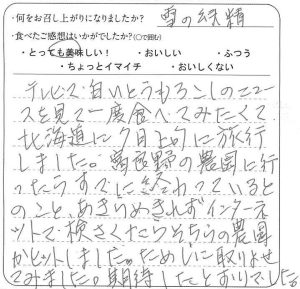 ・何をお召し上がりになりましたか? 雪の妖精
・食べたご感想はいかがでしたか?(○で囲む)
・とっても美味しい! ・おいしい ・ふつう
・ちょっとイマイチ ・おいしくない
テレビで白いとうもろこしのニュー
スを見て一度食べてみたくて
北海道に9月上旬に旅行
しました。富良野の農園に行
ったらすでに終わっていると
のこと、あきらめきれずインターネ
ットで検さくしたらそちらの農園
がヒットしました。ためしに取りよせ
てみました。期待したとおりでした。